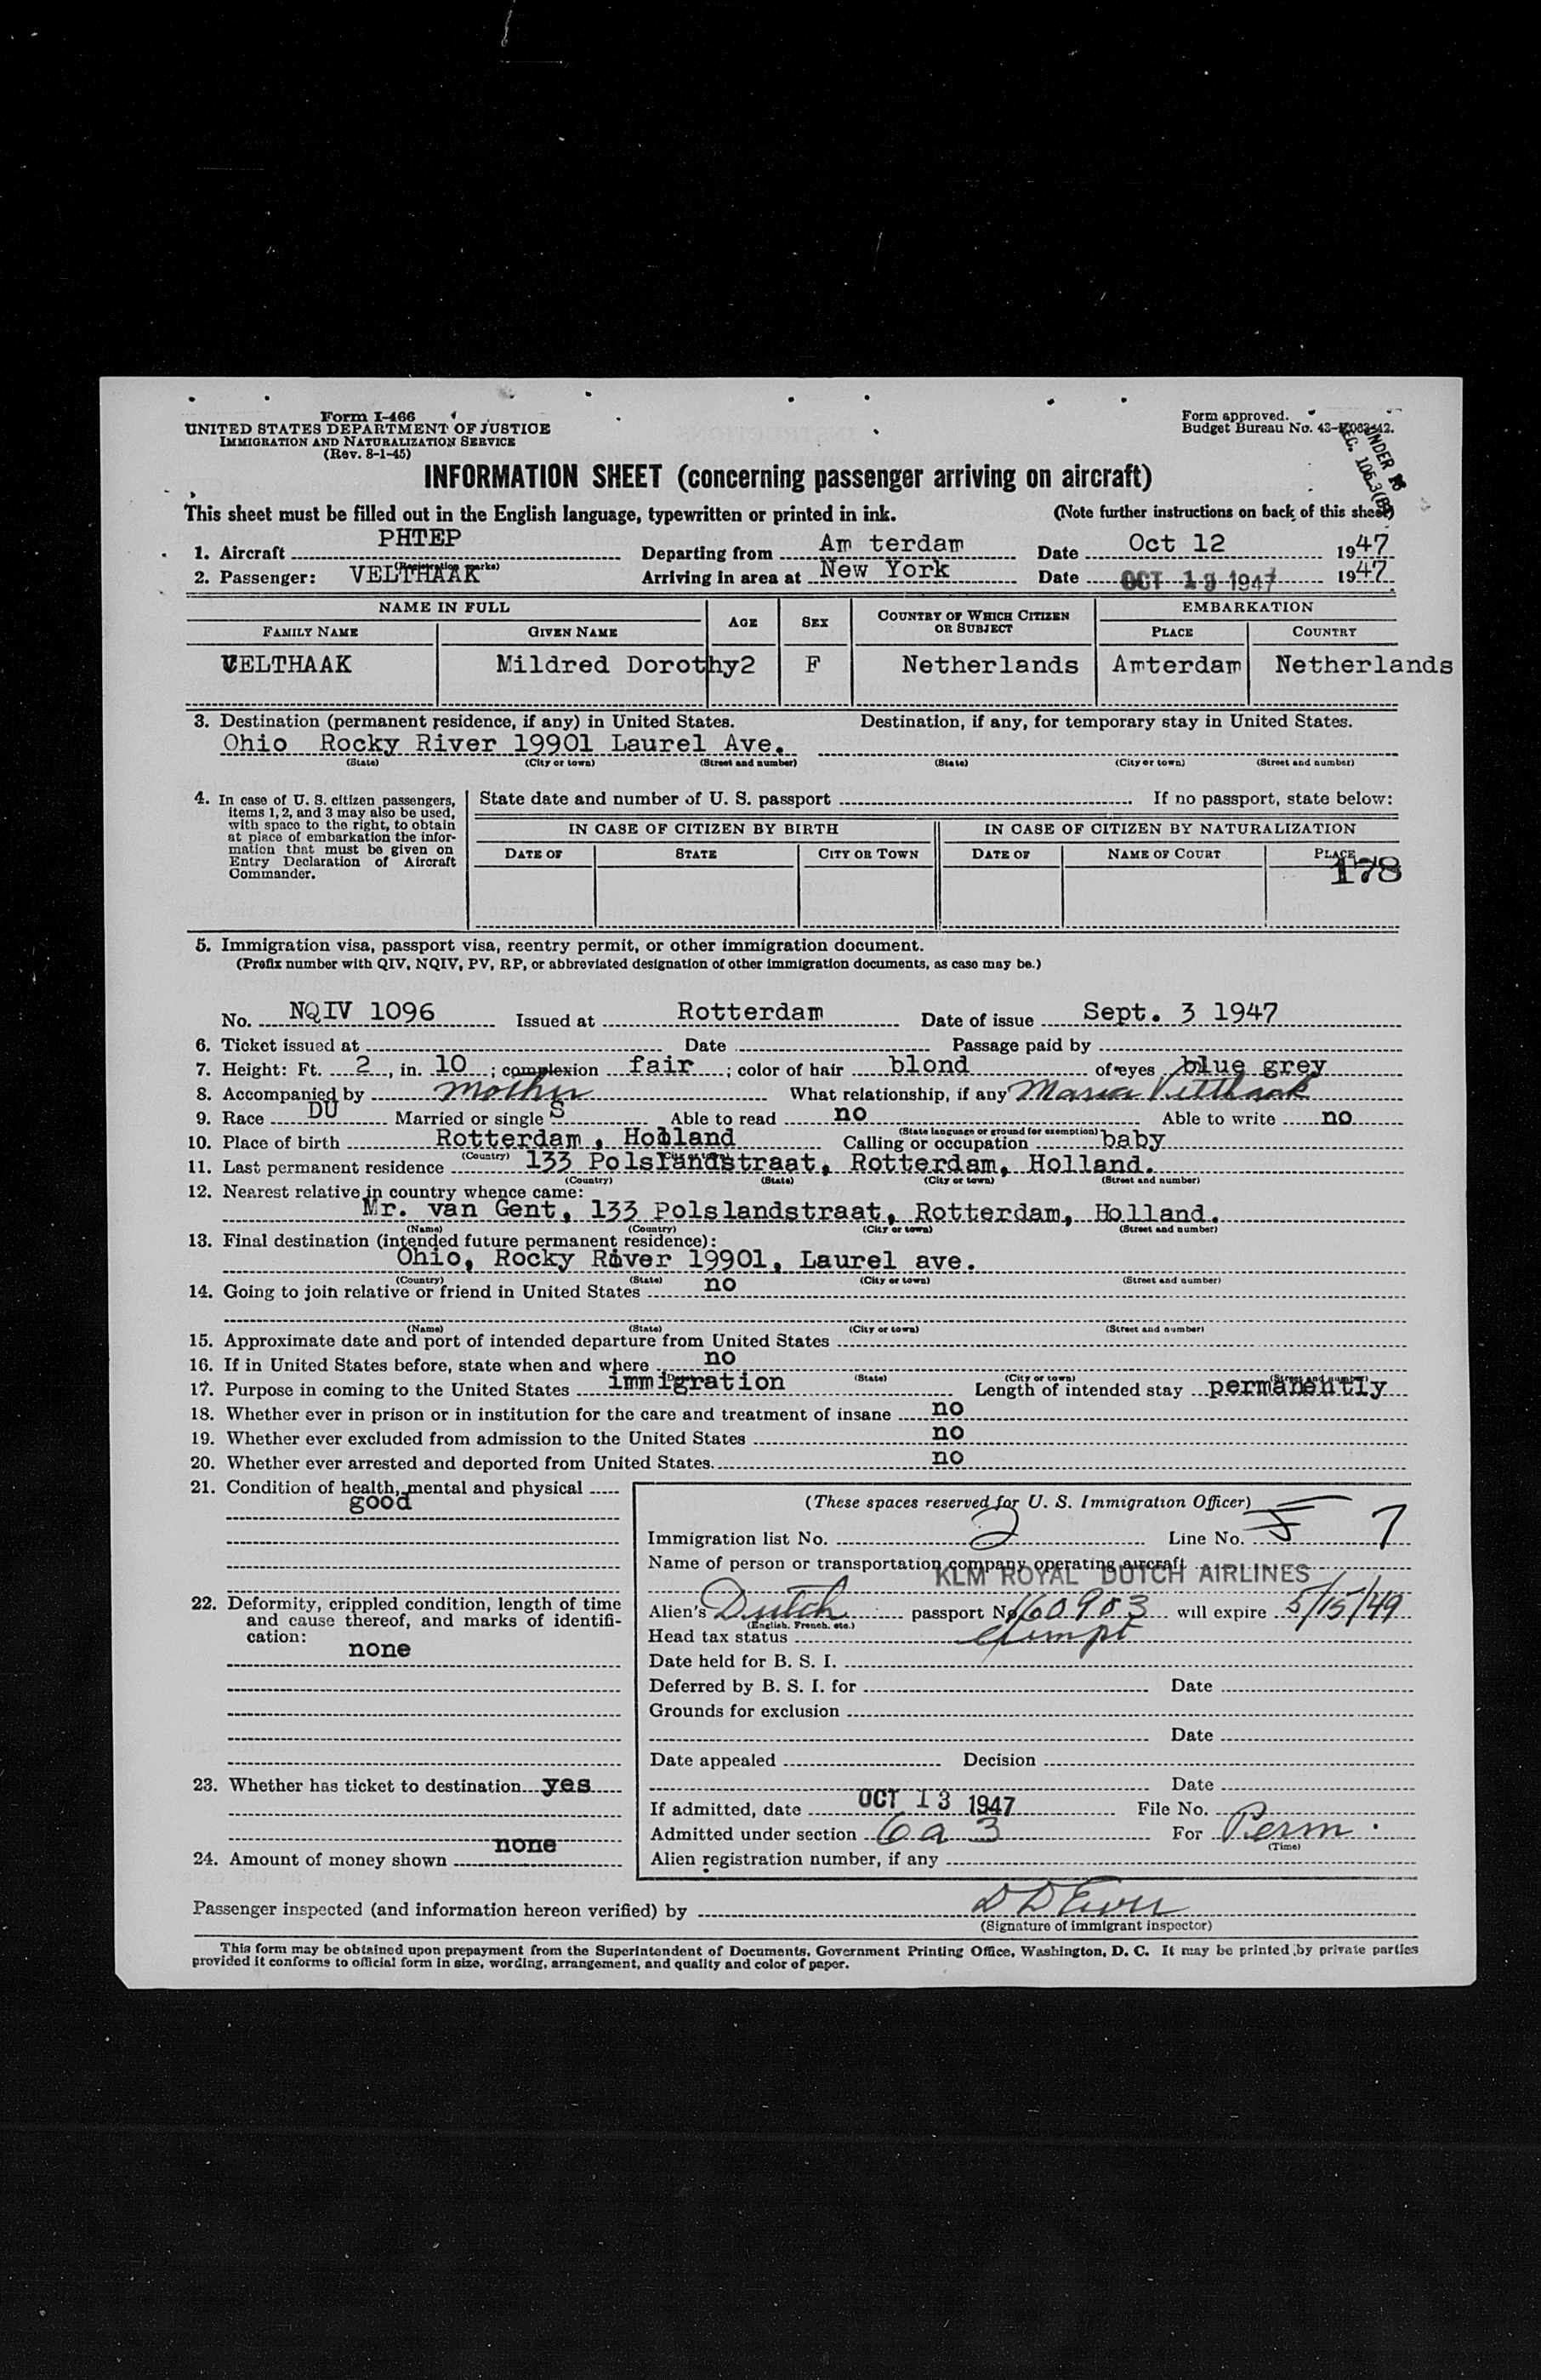 Form I-466
UNITED STATES DEPARTMENT OF JUSTICE
IMMIGRATION AND NATURALIZATION SERVICE
(Rev. 8-1-45)
Form approved.
Budget Bureau No. 43-
UNDER 16
SEC. 106.3(B)
INFORMATION SHEET (concerning passenger arriving on aircraft)
This sheet must be filled out in the English language, typewritten or printed in ink. (Note further instructions on back of this sheet)
1. Aircraft PHTEP Departing from Am terdam Date Oct 12 1947
(Registration marks)
2. Passenger: VELTHAAK Arriving in area at New York Date OCT 13 1947 1947
NAME IN FULL AGE SEX COUNTRY OF WHICH CITIZEN OR SUBJECT EMBARKATION
FAMILY NAME GIVEN NAME PLACE COUNTRY
VELTHAAK Mildred Dorothy 2 F Netherlands Amterdam Netherlands
3. Destination (permanent residence, if any) in United States. Destination, if any, for temporary stay in United States.
Ohio Rocky River 19901 Laurel Ave.
(State) (City or town) (Street and number) (State) (City or town) (Street and number)
4. In case of U. S. citizen passengers, items 1, 2, and 3 may also be used, with space to the right, to obtain at place of embarkation the information that must be given on Entry Declaration of Aircraft Commander.
State date and number of U. S. passport If no passport, state below:
IN CASE OF CITIZEN BY BIRTH IN CASE OF CITIZEN BY NATURALIZATION
DATE OF STATE CITY OR TOWN DATE OF NAME OF COURT PLACE
178
5. Immigration visa, passport visa, reentry permit, or other immigration document.
(Prefix number with QIV, NQIV, PV, RP, or abbreviated designation of other immigration documents, as case may be.)
No. NQIV 1096 Issued at Rotterdam Date of issue Sept. 3 1947
6. Ticket issued at Date Passage paid by
7. Height: Ft. 2, in. 10; complexion fair; color of hair blond of eyes blue grey
8. Accompanied by mother What relationship, if any Maria Velthaak
9. Race DU Married or single S Able to read no Able to write no
(State language or ground for exemption)
10. Place of birth Rotterdam, Holland Calling or occupation baby
(Country) (City or town)
11. Last permanent residence 133 Polslandstraat, Rotterdam, Holland.
(Country) (State) (City or town) (Street and number)
12. Nearest relative in country whence came:
Mr. van Gent, 133 Polslandstraat, Rotterdam, Holland.
(Name) (Country) (City or town) (Street and number)
13. Final destination (intended future permanent residence):
Ohio, Rocky River 19901, Laurel ave.
(Country) (State) (City or town) (Street and number)
14. Going to join relative or friend in United States no
(Name) (State) (City or town) (Street and number)
15. Approximate date and port of intended departure from United States
16. If in United States before, state when and where no
(State) (City or town) (Street and number)
17. Purpose in coming to the United States immigration Length of intended stay permanently
18. Whether ever in prison or in institution for the care and treatment of insane no
19. Whether ever excluded from admission to the United States no
20. Whether ever arrested and deported from United States. no
21. Condition of health, mental and physical
good
22. Deformity, crippled condition, length of time and cause thereof, and marks of identification:
none
23. Whether has ticket to destination yes
24. Amount of money shown none
(These spaces reserved for U. S. Immigration Officer)
Immigration list No. 2 Line No. 7
Name of person or transportation company operating aircraft
KLM ROYAL DUTCH AIRLINES
Alien's Dutch passport No. 160903 will expire 5/15/49
(English, French, etc.)
Head tax status exempt
Date held for B. S. I.
Deferred by B. S. I. for Date
Grounds for exclusion
Date
Date appealed Decision
Date
If admitted, date OCT 13 1947 File No.
Admitted under section 6 a 3 For Perm.
(Time)
Alien registration number, if any
Passenger inspected (and information hereon verified) by
(Signature of immigrant inspector)
This form may be obtained upon prepayment from the Superintendent of Documents, Government Printing Office, Washington, D. C. It may be printed by private parties
provided it conforms to official form in size, wording, arrangement, and quality and color of paper.